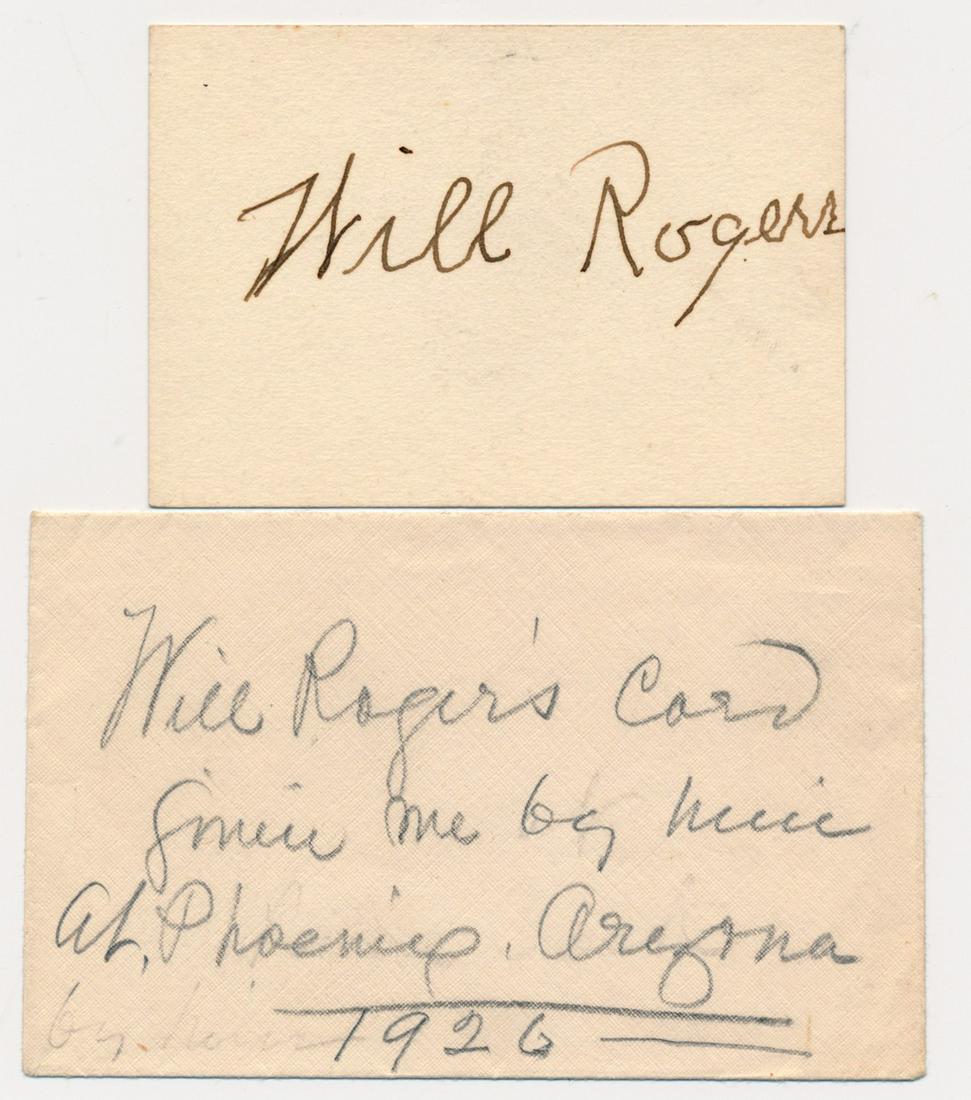 Will Rogers
Will Roger's Card
given me by him
at. Phoenix. Arizona
1926
by him